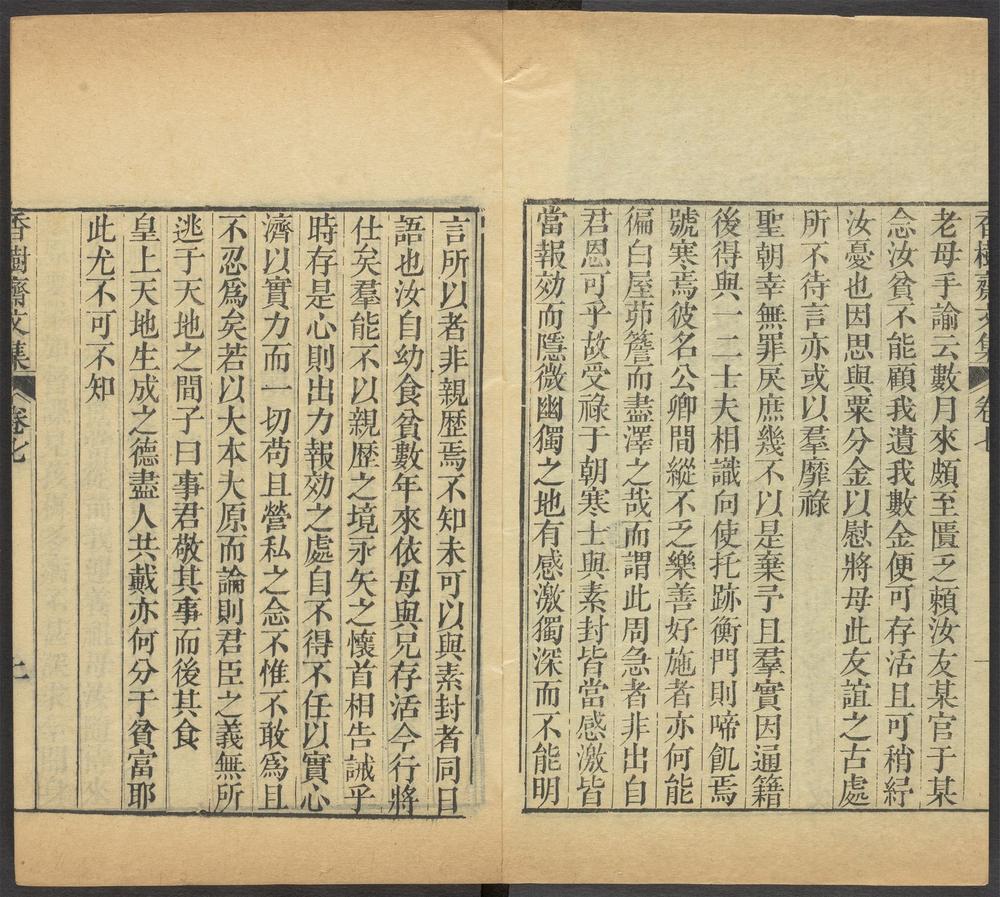 香樹齋文集 卷七
老母手諭云數月來頗至匱乏賴汝友某官于某
念汝貧不能顧我遺我數金便可存活且可稍紓
汝憂也因思與粟分金以慰將母此友誼之古處
所不待言亦或以羣靡祿
聖朝幸無罪戾庶幾不以是棄予且羣實因通籍
後得與一二士夫相識向使托跡衡門則啼飢焉
號寒焉彼名公卿間縱不乏樂善好施者亦何能
徧白屋茆簷而盡澤之哉而謂此周急者非出自
君恩可乎故受祿于朝寒士與素封皆當感激皆
當報効而隱微幽獨之地有感激獨深而不能明
言所以者非親歷焉不知未可以與素封者同日
語也汝自幼食貧數年來依母與兄存活今行將
仕矣羣能不以親歷之境永矢之懷首相告誡乎
時存是心則出力報効之處自不得不任以實心
濟以實力而一切苟且營私之念不惟不敢爲且
不忍爲矣若以大本大原而論則君臣之義無所
逃于天地之間子曰事君敬其事而後其食
皇上天地生成之德盡人共戴亦何分于貧富耶
此尤不可不知
香樹齋文集 卷七